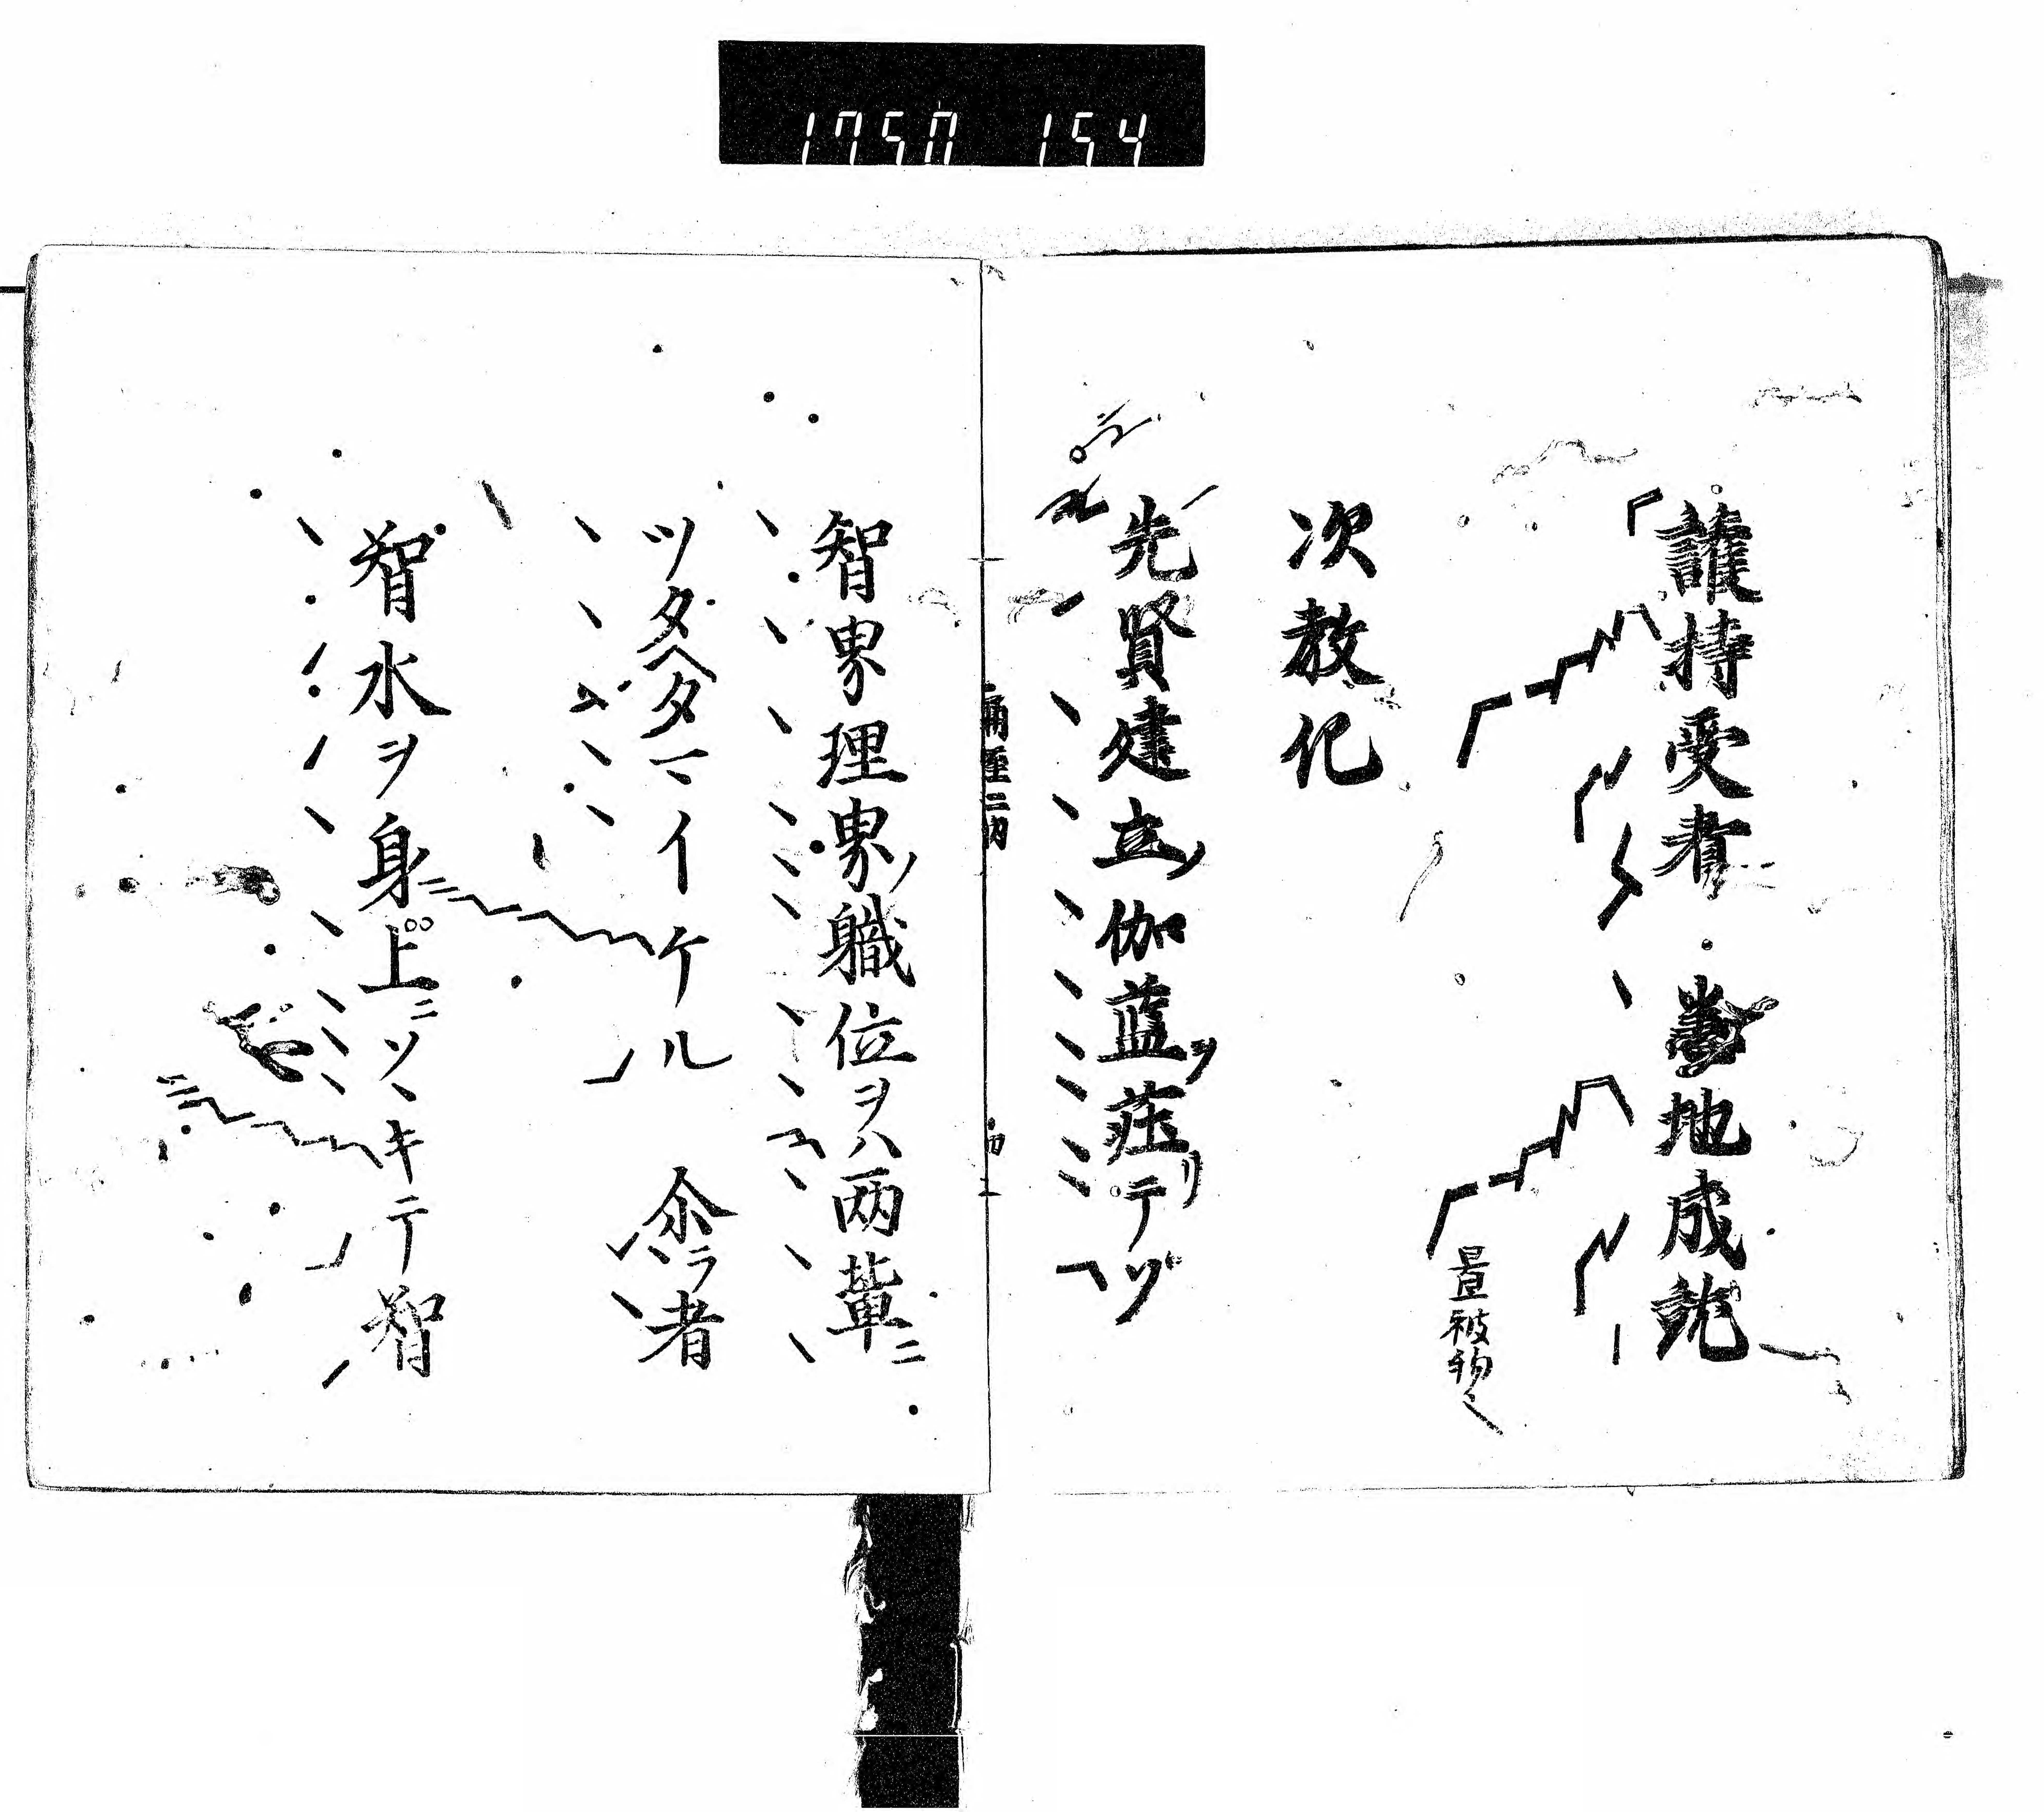 1750 154
護持受者 悉地成就
畳被物之
次教化
先賢建立ノ伽藍ヲ荘リテゾ
智界理界ノ職位ヲハ両輩ニ
ツタヘタマイケル 尒ラ者
智水ヲ身上ニソヽキテ智